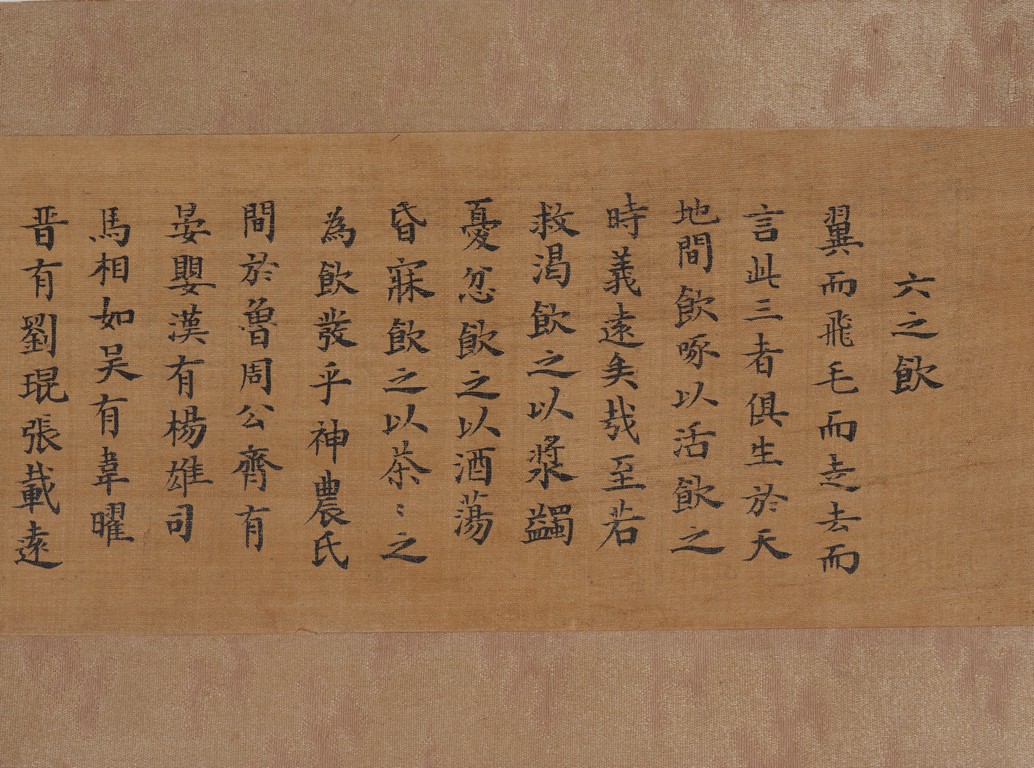 六之飲
翼而飛毛而走去而
言此三者俱生於天
地間飲啄以活飲之
時義遠矣哉至若
救渴飲之以漿蠲
憂忿飲之以酒蕩
昏寐飲之以茶〻之
為飲發乎神農氏
間於魯周公齊有
晏嬰漢有楊雄司
馬相如吳有韋曜
晋有劉琨張載遠